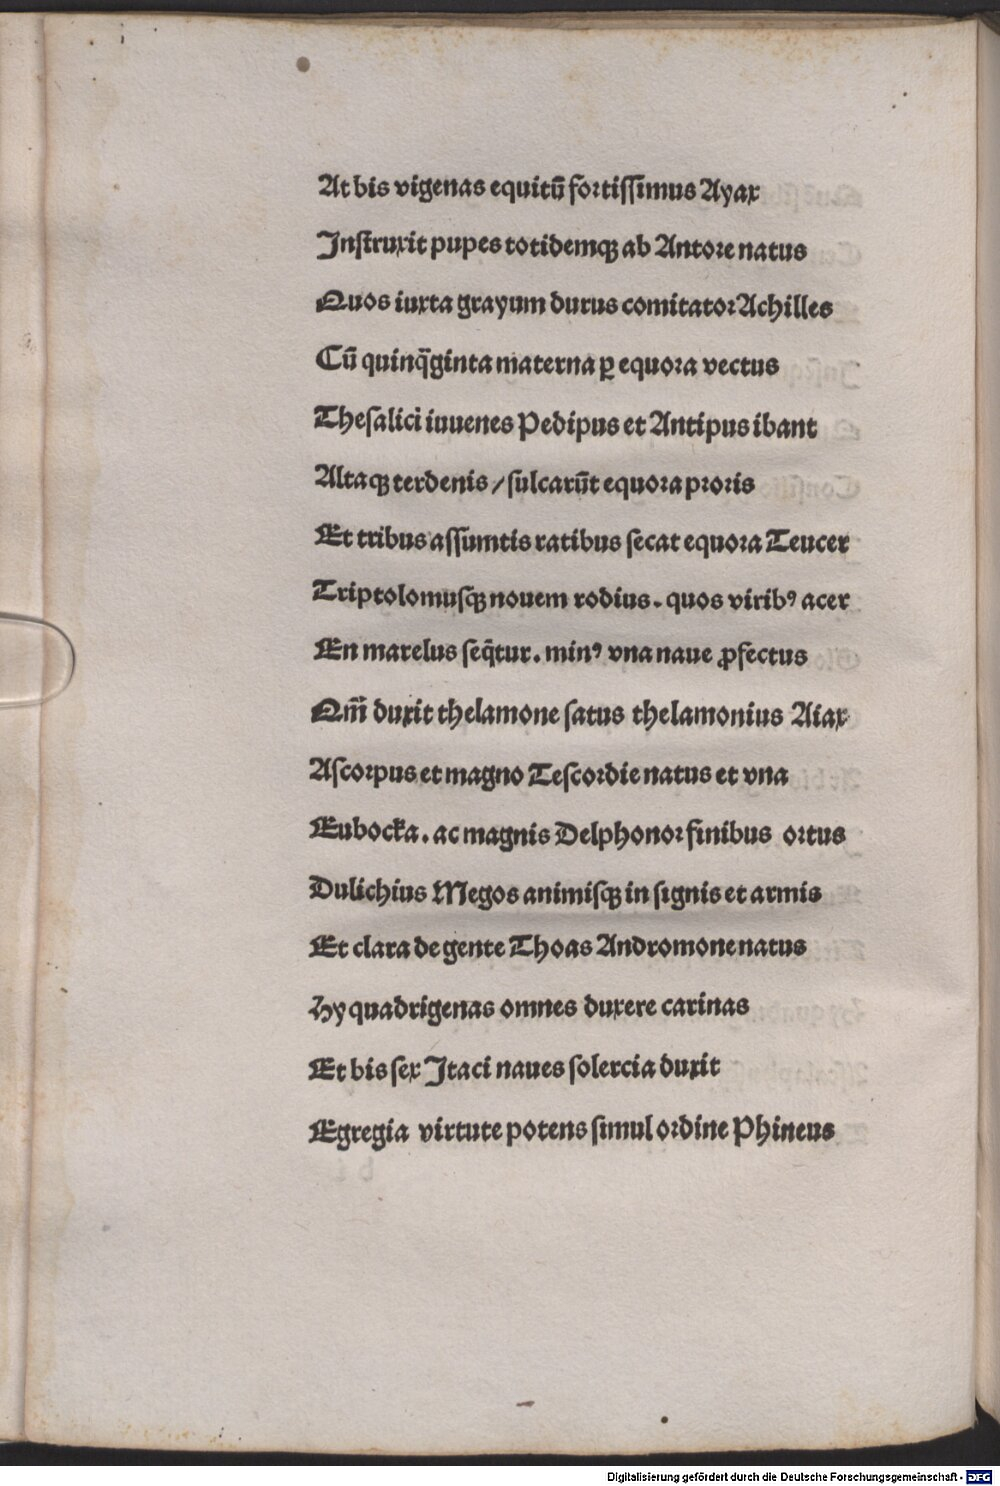 At bis vigenas equitū fortissimus Ayax
Instruxit pupes totidemqꝫ ab Antore natus
Quos iuxta grayum durus comitator Achilles
Cū quinq̄ginta materna ꝑ equora vectus
Thesalici iuuenes Pedipus et Antipus ibant
Altaqꝫ terdenis / sulcarūt equora proris
Et tribus assumtis ratibus secat equora Teucer
Triptolomusqꝫ nouem rodius. quos viribꝰ acer
En marelus seq̄tur. minꝰ vna naue ꝓfectus
Qm̄ duxit thelamone satus thelamonius Aiax
Ascorpus et magno Tescordie natus et vna
Eubocka. ac magnis Delphonor finibus ortus
Dulichius Megos animisqꝫ in signis et armis
Et clara de gente Thoas Andromone natus
Hy quadrigenas omnes duxere carinas
Et bis sex Itaci naues solercia duxit
Egregia virtute potens simul ordine Phineus
Digitalisierung gefördert durch die Deutsche Forschungsgemeinschaft - DFG